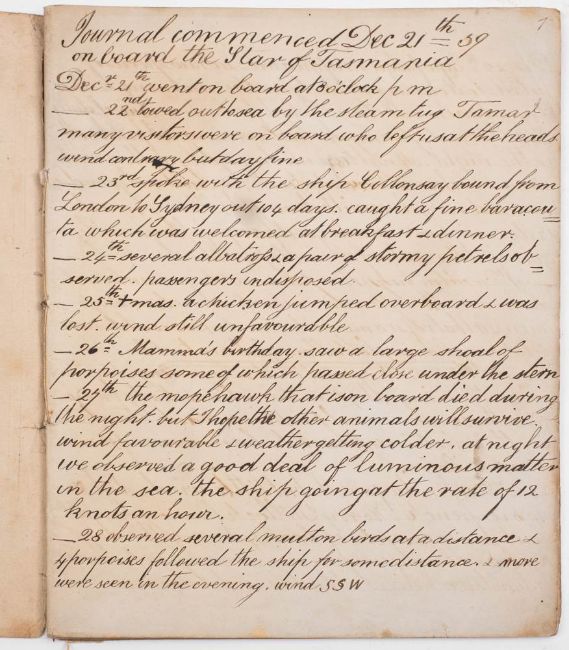 7
Journal commenced Dec 21th 59
on board the Star of Tasmania
Decr 21th went on board at 3 o'clock p m
— 22nd towed out to sea by the steam tug Tamar
many visitors were on board who left us at the heads
wind contrary but day fine
— 23rd spoke with the ship Collonsay bound from
London to Sydney out 104 days. caught a fine baracou=
ta which was welcomed at breakfast & dinner.
— 24th several albatross & a pair of stormy petrels ob=
served. passengers indisposed
— 25th Xmas. a chicken jumped overboard & was
lost. wind still unfavourable
— 26th Mamma's birthday. saw a large shoal of
porpoises some of which passed close under the stern
— 27th the mopehawk that is on board died during
the night. but I hope the other animals will survive.
wind favourable & weather getting colder. at night
we observed a good deal of luminous matter
in the sea. the ship going at the rate of 12
knots an hour.
— 28 observed several mutton birds at a distance &
4 porpoises followed the ship for some distance. & more
were seen in the evening. wind SSW